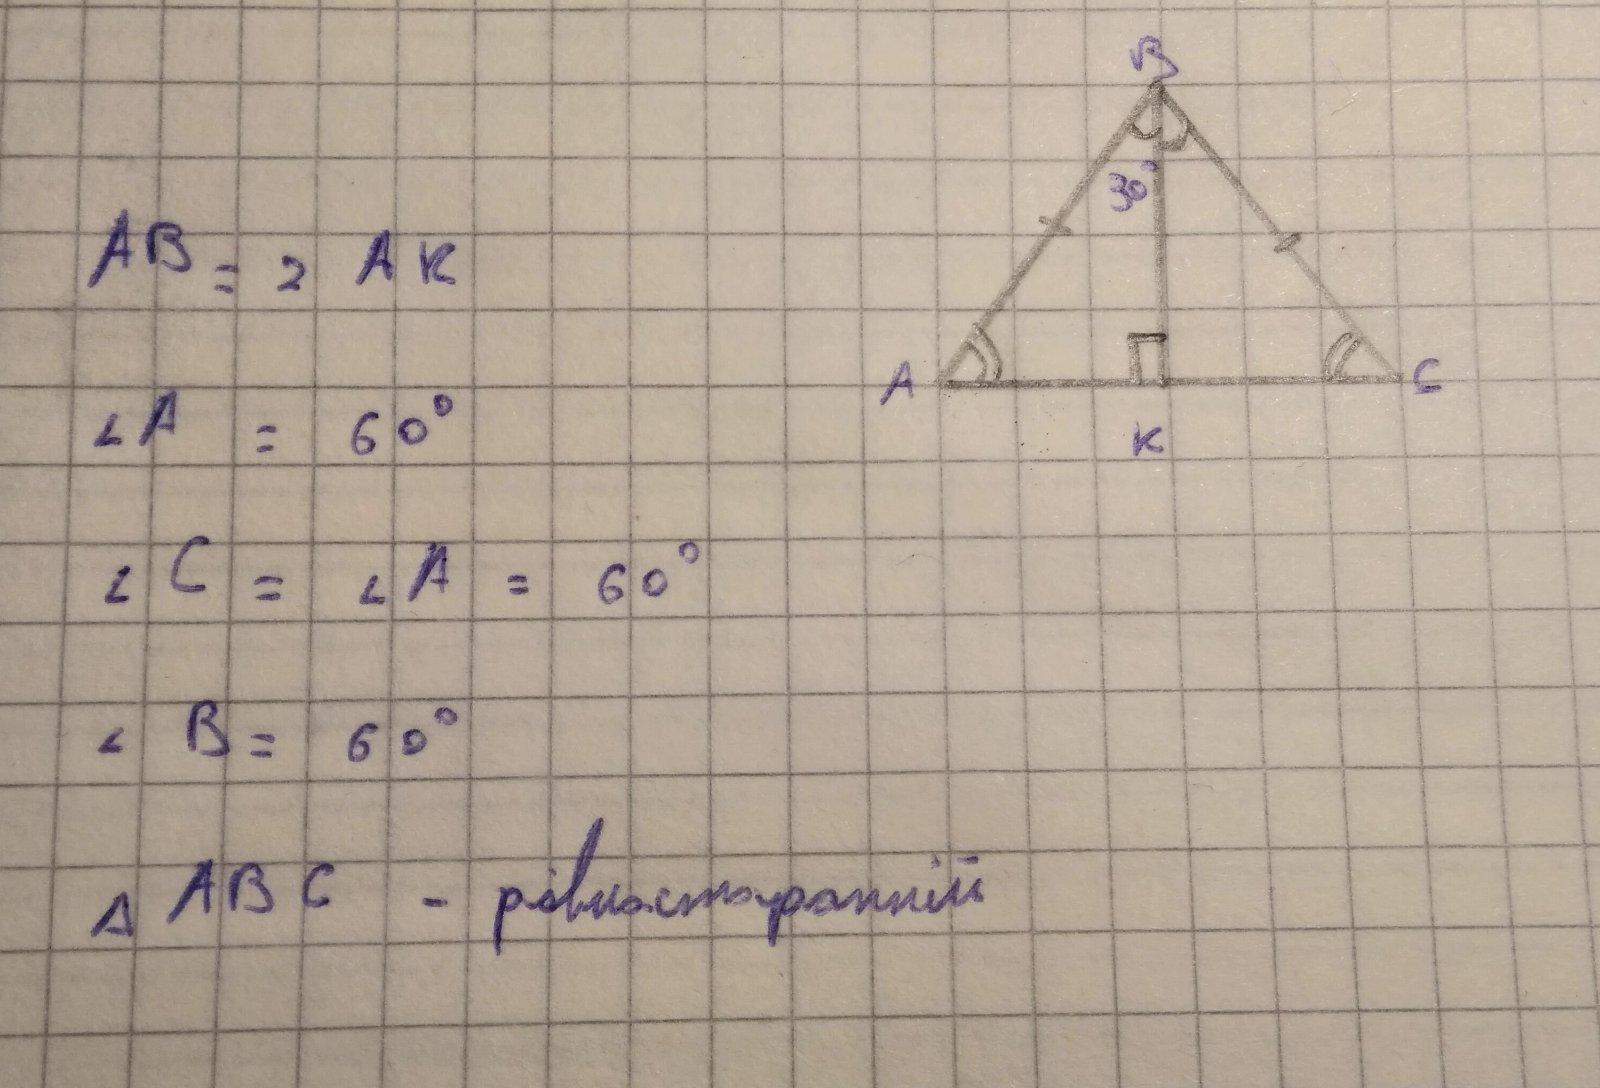 B
30°
A
C
K
AB = 2 AK
∠A = 60°
∠C = ∠A = 60°
∠B = 60°
Δ ABC - рівносторонній